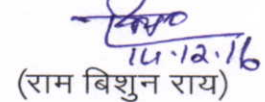 14.12.16
(राम बिशुन राय)